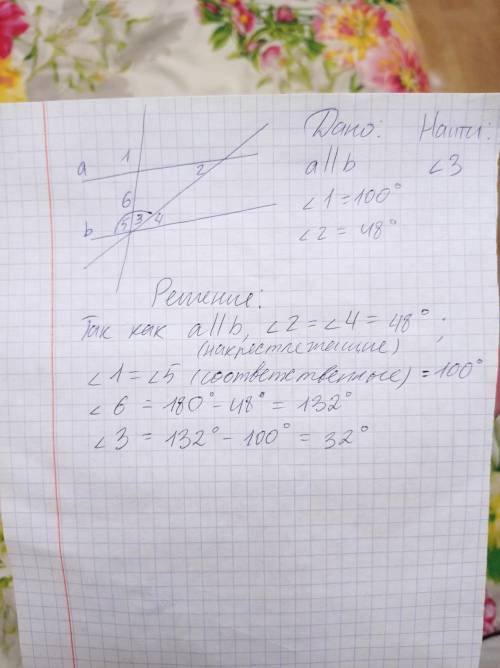 Дано: Найти:
a 1 2 a||b ∠3
6 ∠1 = 100°
b 5 3 4 ∠2 = 48°
Решение:
Так как a||b, ∠2 = ∠4 = 48° ;
(накрестлежащие)
∠1 = ∠5 (соответственные) = 100°
∠6 = 180° - 48° = 132°
∠3 = 132° - 100° = 32°